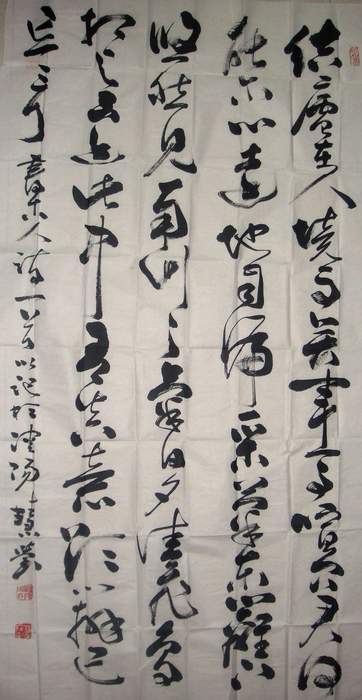 結廬在人境而無車馬喧問君何
能尔心遠地自偏采菊東籬下
悠然見南山山氣日夕佳飛鳥
相與還此中有真意欲辨已
忘言 書古人詩一首以記於